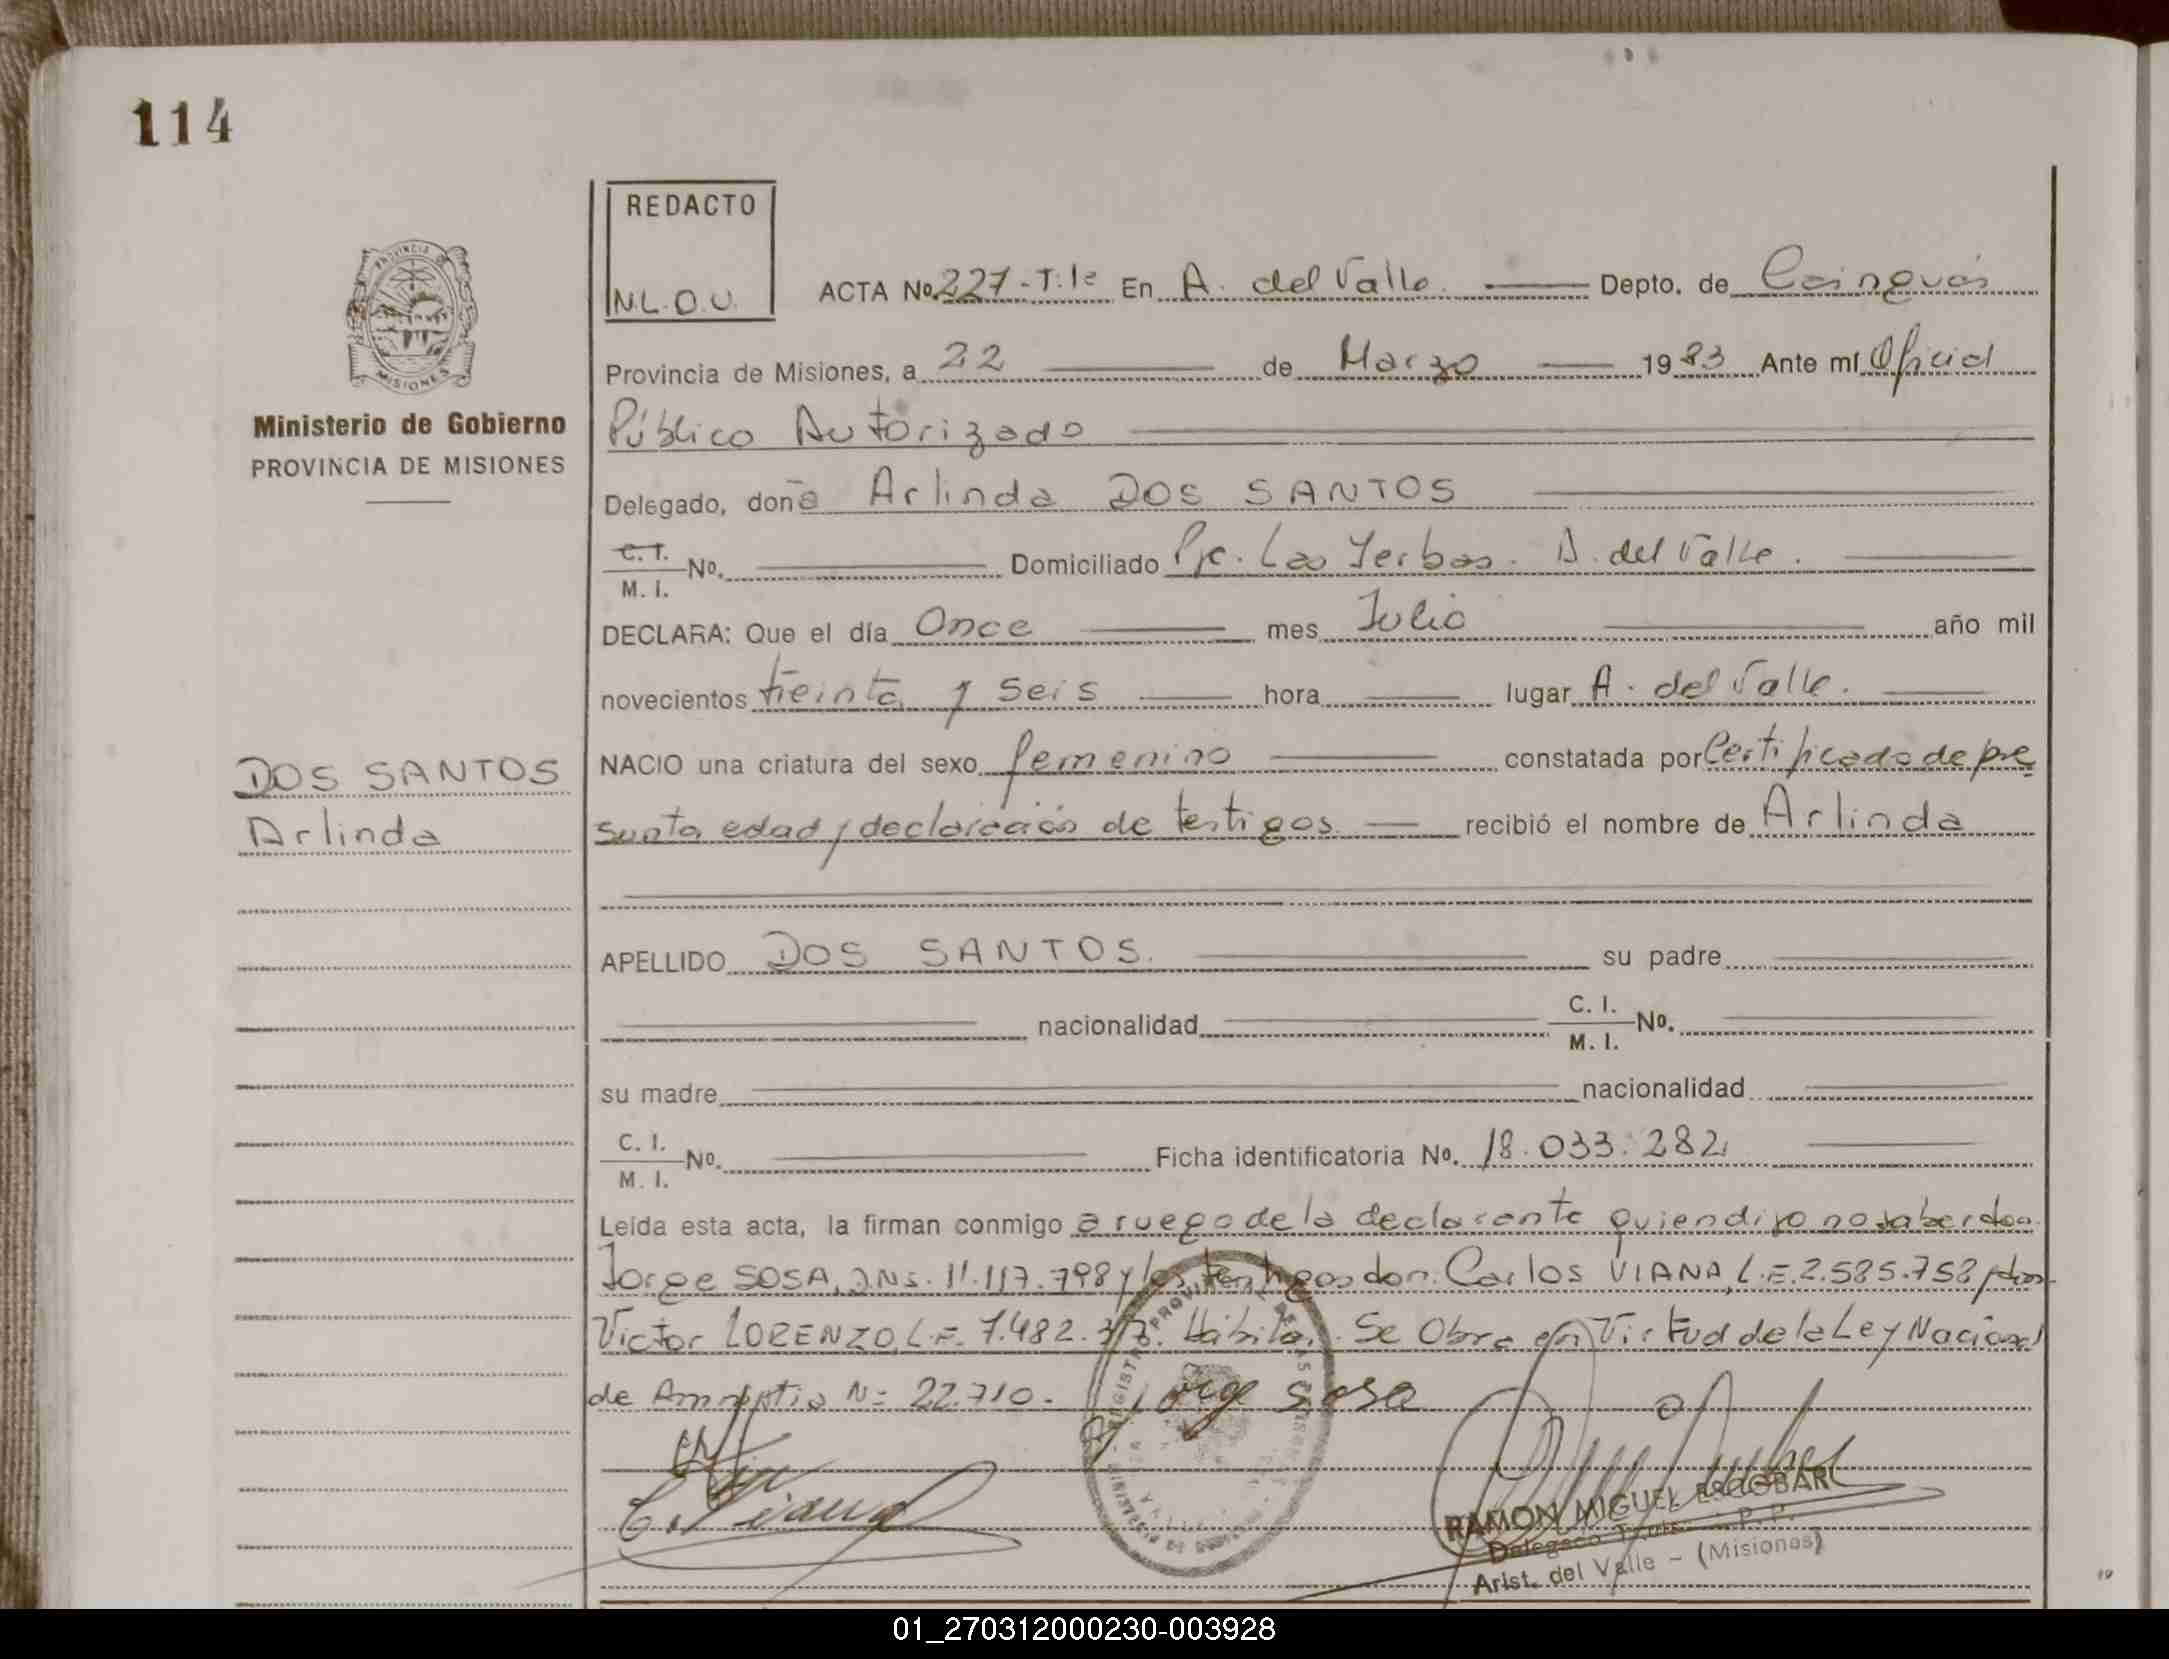 114
REDACTO
N.L.O.U.
ACTA No. 227-T:1º En A. del Valle. Depto. de Cainguás
PROVINCIA
MISIONES
Provincia de Misiones, a 22 de Marzo 1983 Ante mí Oficial
Ministerio de Gobierno
Público Autorizado
PROVINCIA DE MISIONES
Delegado, doña Arlinda DOS SANTOS
C. I.
M. I. No. Domiciliado Pje. Las Yerbas. A. del Valle.
DECLARA: Que el día Once mes Julio año mil
novecientos treinta y seis hora lugar A. del Valle.
DOS SANTOS
NACIO una criatura del sexo femenino constatada por Certificado de pre
Arlinda
sunta edad y declaración de testigos recibió el nombre de Arlinda
APELLIDO DOS SANTOS. su padre
nacionalidad C. I.
M. I. No.
su madre nacionalidad
C. I.
M. I. No. Ficha identificatoria No. 18.033.282
Leída esta acta, la firman conmigo a ruego de la declarante quien dijo no saber don
Jorge SOSA, DNI. 11.117.798 y los testigos don. Carlos VIANA, L.E. 2.585.758 y don
Victor LORENZO, L.E. 7.482. Hábiles. Se Obra en Virtud de la Ley Nacional
de Amnistia Nº 22.710.- Jorge Sosa
C. Viana
RAMON MIGUEL ESCOBAR
Delegado Titular P. P.
Arist. del Valle - (Misiones)
01_270312000230-003928